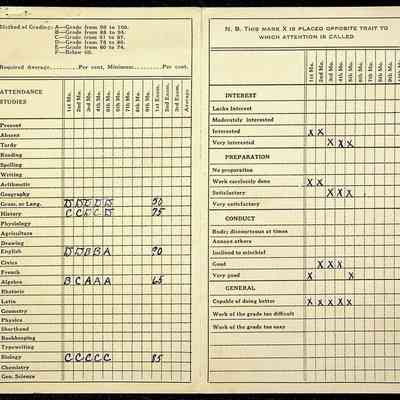 Method of Grading: A—Grade from 95 to 100.
B—Grade from 88 to 94.
C—Grade from 81 to 87.
D—Grade from 75 to 80.
Required Average Per cent, Minimum Per cent.
ATTENDANCE
STUDIES
1st Mo. 2nd Mo. 3rd Mo. 4th Mo. 5th Mo. 6th Mo. 7th Mo. 8th Mo. 9th Mo. 1st Exam. 2nd Exam. 3rd Exam. Average
Present
Absent
Tardy
Reading
Spelling
Writing
Arithmetic
Geography
Gram. or Lang. D D D D 50
History C C C D 75
Physiology
Agriculture
Drawing
English D D B B A 90
Civics
French
Algebra B C A A A 65
Rhetoric
Latin
Geometry
Physics
Shorthand
Bookkeeping
Typewriting
Biology C C C C C 85
Chemistry
Gen. Science
N. B. THIS MARK X IS PLACED OPPOSITE TRAIT TO
WHICH ATTENTION IS CALLED
1st Mo. 2nd Mo. 3rd Mo. 4th Mo. 5th Mo. 6th Mo. 7th Mo. 8th Mo. 9th Mo.
INTEREST
Lacks Interest
Moderately interested
Interested X X
Very interested X X X
PREPARATION
No preparation
Work carelessly done X X
Satisfactory X X X
Very satisfactory
CONDUCT
Rude; discourteous at times
Annoys others
Inclined to mischief
Good X X X
Very good X X
GENERAL
Capable of doing better X X X X X
Work of the grade too difficult
Work of the grade too easy